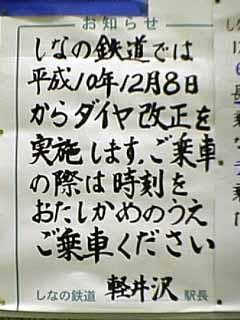 お知らせ
しなの鉄道では
平成10年12月8日
からダイヤ改正を
実施します。ご乗車
の際は時刻を
おたしかめのうえ
ご乗車ください
しなの鉄道 軽井沢 駅長